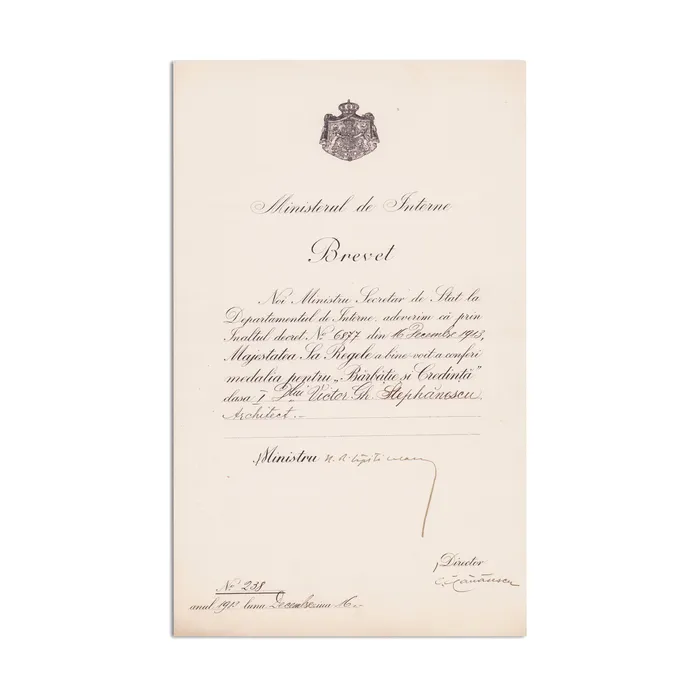 Ministerul de Interne
Brevet
Noi Ministru Secretar de Stat la
Departamentul de Interne, adeverim că prin
Inaltul decret No 6877 din 16 Decembr. 1913,
Majestatea Sa Regele a bine-voit a conferi
medalia pentru „Bărbăție si Credință"
clasa I Dlui Victor Gh. Stephănescu
Architect.-
Ministru
Director
No 238
anul 1913 luna Decembrie 16